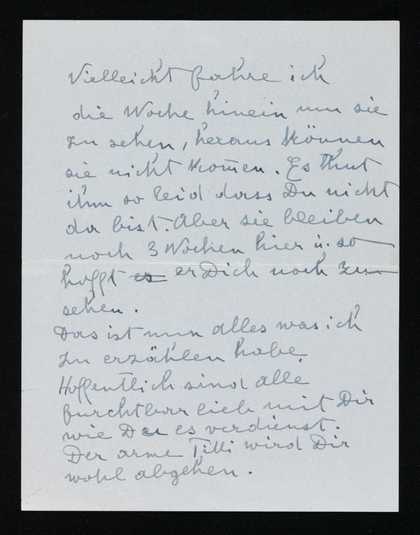 Vielleicht fahre ich
die Woche hinein um sie
zu sehen, heraus können
sie nicht kom̄en. Es thut
ihm so leid dass Du nicht
da bist. Aber sie bleiben
noch 3 Wochen hier u. so
hofft es er Dich noch zu
sehen.
Das ist nun alles was ich
zu erzählen habe.
Hoffentlich sind alle
furchtbar lieb mit Dir
wie Du es verdienst.
Der arme Titti wird Dir
wohl abgehen.